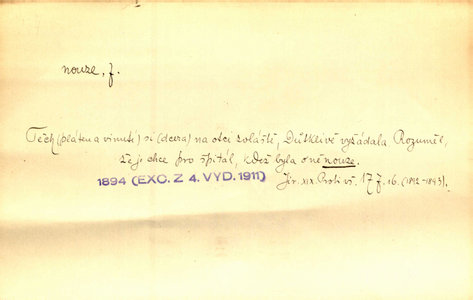 nouze, f.
Těch (pláten a vinutí) si (dcera) na otci zvláště, Důtklivě vyžádala Rozuměl,
že je chce pro špitál, kdež byla o ně nouze.
1894 (EXC. Z 4. VYD. 1911) Jir. XIX. Proti vš. 17 f. 16. (1892-1893).